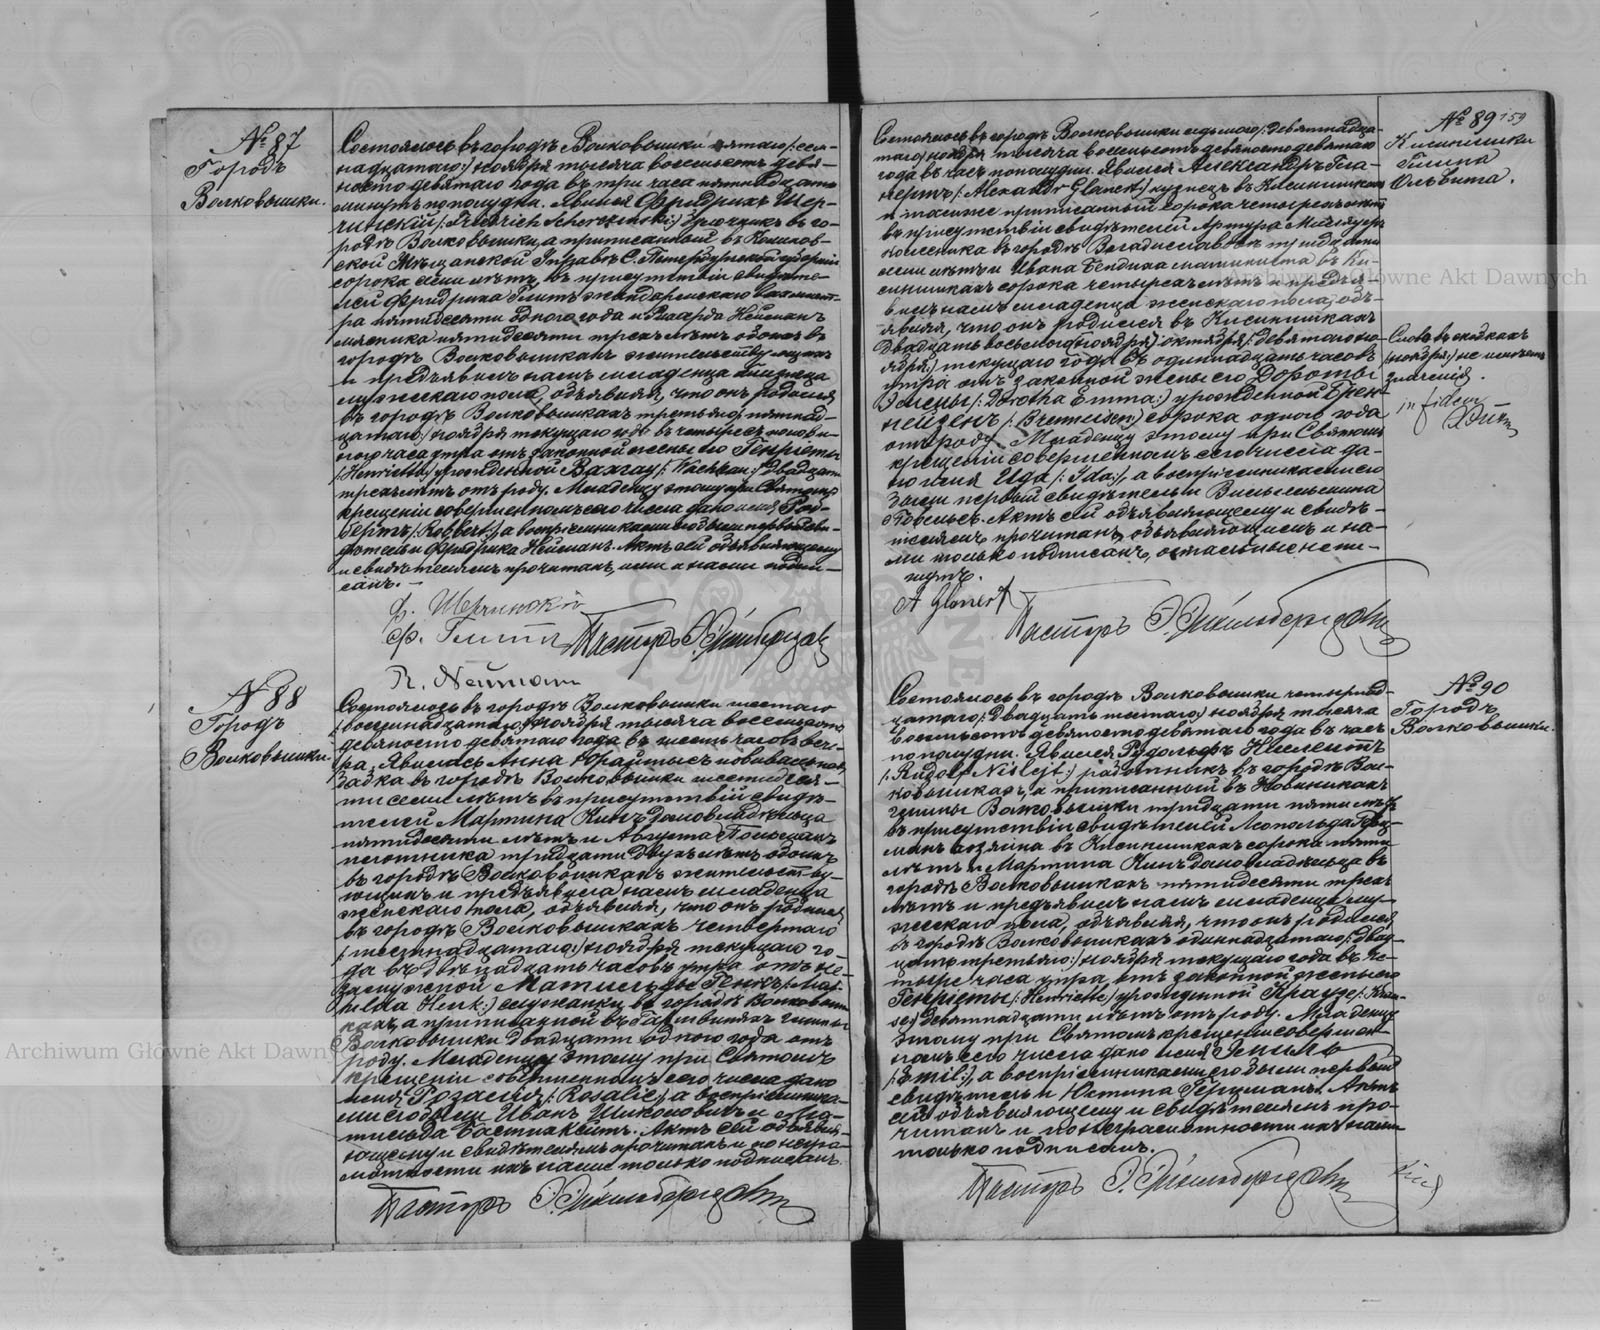 № 87
Городъ
Волковышки.
Состоялось въ городѣ Волковышки пятаго /: сем-
надцатаго :/ ноября тысяча восемьсотъ девя-
носто девятаго года въ три часа пятнадцать
минутъ пополудни. Явился Фридрихъ Щер-
чинскій /: Friedrich Scherczinski :/ въ го-
родѣ Волковышки, а приписанный въ
ской Мѣщанской Управѣ С. Петербургской губерніи
сорока семи лѣтъ, въ присутствіи свидѣте-
лей Фридриха жандармскаго вахмист-
ра пятидесяти одного года и Нейманъ
мясника пятидесяти трехъ лѣтъ обоихъ въ
городѣ Волковышкахъ жительствующихъ
и предъявилъ намъ младенца близнеца
мужескаго пола, объявляя, что онъ родился
въ городѣ Волковышкахъ третьяго /: пятнад-
цатаго :/ ноября текущаго года въ четыре съ полови-
ного часа утра отъ законной жены его Генріеты
/: Henriette :/ урожденной двадцати
трехъ лѣтъ отъ роду. Младенцу этому при Святомъ
крещеніи совершенномъ сего числа дано имя Роб-
бертъ /: Robbert :/, а воспріемниками его были первый сви-
дѣтель и Фридрика Нейманъ. Актъ сей объявляющему
и свидѣтелямъ прочитанъ, ими и нами подпи-
санъ. –
ф. Щерчинскій
Ф.
Пасторъ
R. Neumann
№ 88
Городъ
Волковышки.
Состоялось въ городѣ Волковышки шестаго
/: восемнадцатаго :/ ноября тысяча восемьсотъ
девяносто девятаго года въ шесть часовъ вече-
ра. Явилась Анна повивальная
бабка въ городѣ Волковышки шестидеся-
ти семи лѣтъ въ присутствіи свидѣ-
телей Мартина Кинъ домовладѣльца
пятидесяти лѣтъ и Августа
плотника тридцати двухъ лѣтъ обоихъ
въ городѣ Волковышкахъ жительству-
ющихъ и предъявила намъ младенца
женскаго пола, объявляя, что онъ родился
въ городѣ Волковышкахъ четвертаго
/: шестнадцатаго :/ ноября текущаго го-
да въ двѣнадцать часовъ утра отъ не-
замужной Матильды Генкъ /: Mat-
hilda Henk :/ служанки въ городѣ Волковыш-
кахъ, а приписанной въ гмины
Волковышки двадцати одного года отъ
роду. Младенцу этому при Святомъ
крещеніи совершенномъ сего числа дано
имя Розалія /: Rosalie :/, а воспріемника-
ми его были Иванъ и Ма-
тильда Актъ сей объявля-
ющему и свидѣтелямъ прочитанъ и по негра-
мотности ихъ нами только подписанъ.
Пасторъ
№ 89 159
Кисинишки
Гмина
Ольвита.
Состоялось въ городѣ Волковышки седьмого /: девятнадца-
таго :/ ноября тысяча восемьсотъ девяносто девятаго
года въ часъ пополудни. Явился Александръ Гла-
нертъ /: Alexander Glanert :/ кузнецъ въ Кисинишкахъ
и тамже приписанный сорока четырехъ лѣтъ
въ присутствіи свидѣтелей Артура
колесника въ городѣ Владиславовѣ тридцати
семи лѣтъ и Ивана въ Ки-
синишкахъ сорока четырехъ лѣтъ и предъя-
вилъ намъ младенца женскаго пола, объ-
являя, что онъ родился въ Кисинишкахъ
двадцать восьмаго /: ноября :/ октября /: девятаго но-
ября :/ текущаго года въ одиннадцать часовъ
утра отъ законной жены его Дороты
Эммы /: Dorotha Emma :/ урожденной Брен-
нейзенъ /: Brenneisen :/ сорока одного года
отъ роду. Младенцу этому при Святомъ
крещеніи совершенномъ сего числа да-
но имя Ида /: Ida :/, а воспріемниками его
были первый свидѣтель и Вильгельмина
Актъ сей объявляющему и свидѣ-
телямъ прочитанъ, объявляющимъ и на-
ми только подписанъ, остальные не пи-
шутъ.
A Glanert
Пасторъ
Слово въ скобкахъ
/: ноября :/ не имѣетъ
значенія.
in fidem
№ 90
Городъ
Волковышки.
Состоялось въ городѣ Волковышки четырнад-
цатаго /: двадцать шестаго :/ ноября тысяча
восемьсотъ девяносто девятаго года въ часъ
пополудни. Явился Рудольфъ
/: Rudolf :/ работникъ въ городѣ Вол-
ковышкахъ, а приписанный въ Новиникахъ
гмины Волковышки тридцати пяти лѣтъ
въ присутствіи свидѣтелей Леопольда Герц-
манъ хозяина въ Кисинишкахъ сорока пяти
лѣтъ и Мартина Кинъ домовладѣльца въ
городѣ Волковышкахъ пятидесяти трехъ
лѣтъ и предъявилъ намъ младенца му-
жескаго пола, объявляя, что онъ родился
въ городѣ Волковышкахъ одиннадцатаго /: двад-
цать третьяго :/ ноября текущаго года въ че-
тыре часа утра, отъ законной жены его
Генріеты /: Henriette :/ урожденной Краузе /: Krau-
se :/ девятнадцати лѣтъ отъ роду. Младенцу
этому при Святомъ крещеніи совершон-
номъ сего числа дано имя Эмиль
/: Emil :/, а воспріемниками его были первый
свидѣтель и Юстина Герцманъ. Актъ
сей объявляющему и свидѣтелямъ про-
читанъ и по неграмотности ихъ нами
только подписанъ.
Пасторъ
Archiwum Główne Akt Dawnych
Archiwum Główne Akt Dawnych